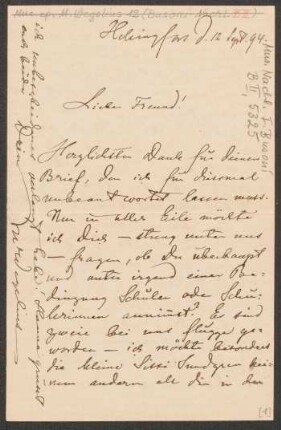 Mus. ep. M. Wegelius 12 (Busoni-Nachl. B II)
Mus. Nachl. F. Busoni B II, 5325
Helsingfors d. 12 Sept 94.
Lieber Freund!
Herzlichsten Dank für Deinen
Brief, den ich für diesmal
unbeantwortet lassen muss.
Nur in aller Eile möchte
ich Dich – streng unter uns
– fragen, ob Du überhaupt
und unter irgend einer Be-
dingung Schüler oder Schü-
lerinnen annimst? Es sind
zweie bei uns flügge ge-
worden – ich möchte besonders
die kleine Sissi Sundgren kei-
nem andern als dir in den
[1]
ich unbescheidener
verlangt habe. Hanna grüsst
euch beide. Dein